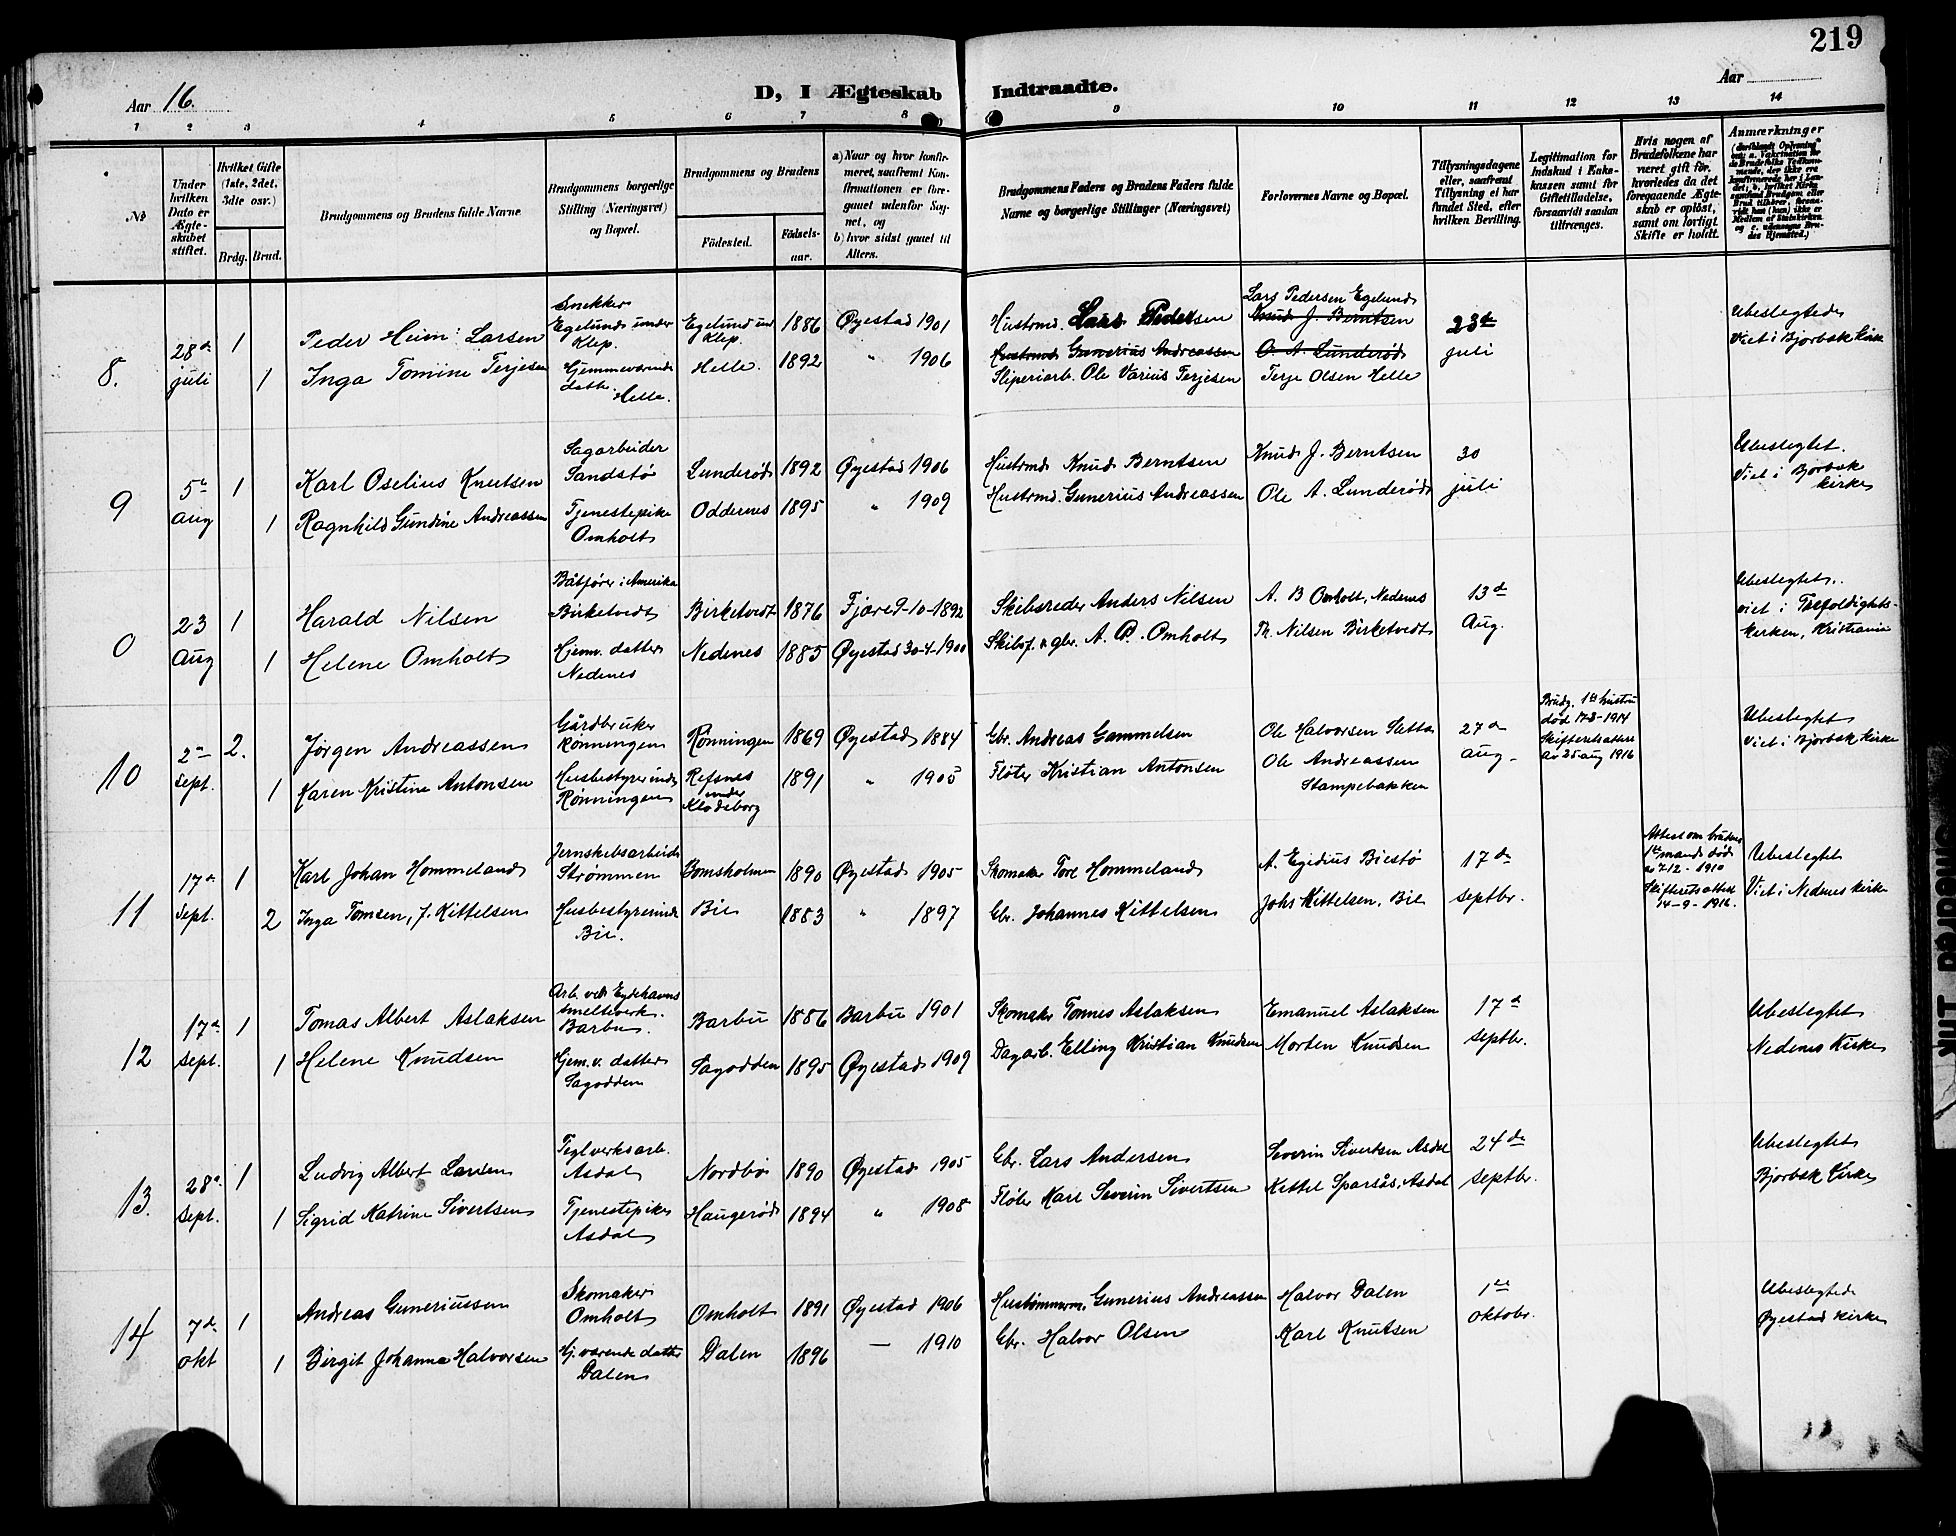 219
Aar 16.
D, I Ægteskab Indtraadte.
Aar
1 2 3 4 5 6 7 8 9 10 11 12 13 14
No
Under hvilken Dato er Ægteskabet stiftet.
Hvilket Gifte (1ste, 2det, 3die osv.)
Brdg. Brud.
Brudgommens og Brudens fulde Navne
Brudgommens borgerlige Stilling (Næringsvei) og Bopæl.
Brudgommens og Brudens
Födested.
Födselsaar.
a) Naar og hvor konfirmeret, saafremt Konfirmationen er foregaaet udenfor Sognet, og
b) hvor sidst gaaet til Alters.
Brudgommens Faders og Brudens Faders fulde Navne og borgerlige Stillinger (Næringsvei)
Forlovernes Navne og Bopæl.
Tillysningsdagene eller, saafremt Tillysning ei har fundet Sted, efter hvilken Bevilling.
Legitimation for Indskud i Enkekassen samt for Giftetilladelse, forsaavidt saadan tiltrænges.
Hvis nogen af Brudefolkene har været gift før, hvorledes da det foregaaende Ægteskab er opløst, samt om lovligt Skifte er holdt.
Anmærkninger
8. 28de juli 1 Peder Heim. Larsen Snekker Egelund under Klep. Egelund und Klep. 1886 Øyestad 1901 Hustømd. Lars Pedersen Lars Pedersen Egelund Knud J. Berntsen 23de juli Ubeslegtede Viet i Bjorbæk Kirke
1 Inga Tomine Terjesen Hjemmeværende datter Helle. Helle. 1892 " 1906 Hustømd Gunerius Andreassen Sliperiarb. Ole Varius Terjesen O. A. Lunderød Terje Olsen Helle
9 5te Aug 1 Karl Oselius Knutsen Sagarbeider Sandstø Lunderød 1892 Øyestad 1906 Hustømd Knud Berntsen Knud J. Berntsen 30 juli Ubeslegtet. Viet i Bjorbæk kirke
1 Ragnhild Gundine Andreassen Tjenestepike Omholt Oddernes 1895 " 1909 Hustømd. Gunerius Andreassen Ole A. Lunderød
0 23 Aug 1 Harald Nilsen Båtfører i Amerika Birketvedt Birketvedt 1876 Fjære 9-10-1892 Skibsreder Anders Nilsen A. B Omholt, Nedenes 13de Aug. Ubeslegtet. viet i Trefoldighetskirken, Kristiania
1 Helene Omholt Hjemv. datter Nedenes Nedenes 1885 Øyestad 30-4-1900 Skibsf. & gbr. A. P. Omholt Th. Nilsen Birketvedt
10 2den Sept. 2. Jørgen Andreassen Gårdbruker Rønningen Rønningen 1869 Øyestad 1884 Gbr. Andreas Gammelsen Ole Halvorsen Sletta 27de Aug. Brudg. 1ste hustru død 17-3-1914 Skifteretsattest av 25 aug 1916 Ubeslegtet Viet i Bjorbæk Kirke
1 Karen Kristine Antonsen Husbestyrerinde Rønningen Refsnes under Klodeborg 1891 " 1905 Fløter Kristian Antonsen Ole Andreassen Stampebakken
11 17de Sept. 1 Karl Johan Hommeland Jernskibsarbeider Strømmen Bomsholmen 1890 Øyestad 1905 Skomaker Tore Hommeland A. Egidius Biestø 17de septbr. Attest om brudens 1ste mands død 7-12-1910 Skifteretsattest 14-9-1916. Ubeslegtet Viet i Nedenes kirke
2 Inga Tomsen, f. Kittelsen Husbestyrerinde Bie. Bie 1883 " 1897 Gbr. Johannes Kittelsen Johs Kittelsen, Bie
12 17de Sept. 1 Tomas Albert Aslaksen Arb. ved Eydehavns smelteverk. Barbu. Barbu 1886 Barbu 1901 Skomaker Tonnes Aslaksen Emanuel Aslaksen 17de septbr. Ubeslegtet Nedenes Kirke
1 Helene Knudsen Hjem. v. datter Sagodden Sagodden 1895 Øyestad 1909 Dagarb. Elling Kristian Knudsen Morten Knudsen
13. 28de Sept. 1 Ludvig Albert Larsen Teglverksarb. Asdal Nordbø 1890 Øyestad 1905 Gbr. Lars Andersen Severin Sivertsen Asdal 24de septbr. Ubeslegtet Bjorbæk Kirke
1 Sigrid Katrine Sivertsen Tjenestepike Asdal Haugerød 1894 " 1908 Fløter Karl Severin Sivertsen Kittel Sparsås, Asdal
14 7de okt 1 Andreas Guneriussen Skomaker Omholt Omholt 1891 Øyestad 1906 Hustømmerm. Gunerius Andreassen Halvor Dalen 1ste oktobr. Ubeslegted Øyestad Kirke
1 Birgit Johanna Halvorsen Hj. værende datter Dalen Dalen 1896 — 1910 Gbr. Halvor Olsen Karl Knutsen